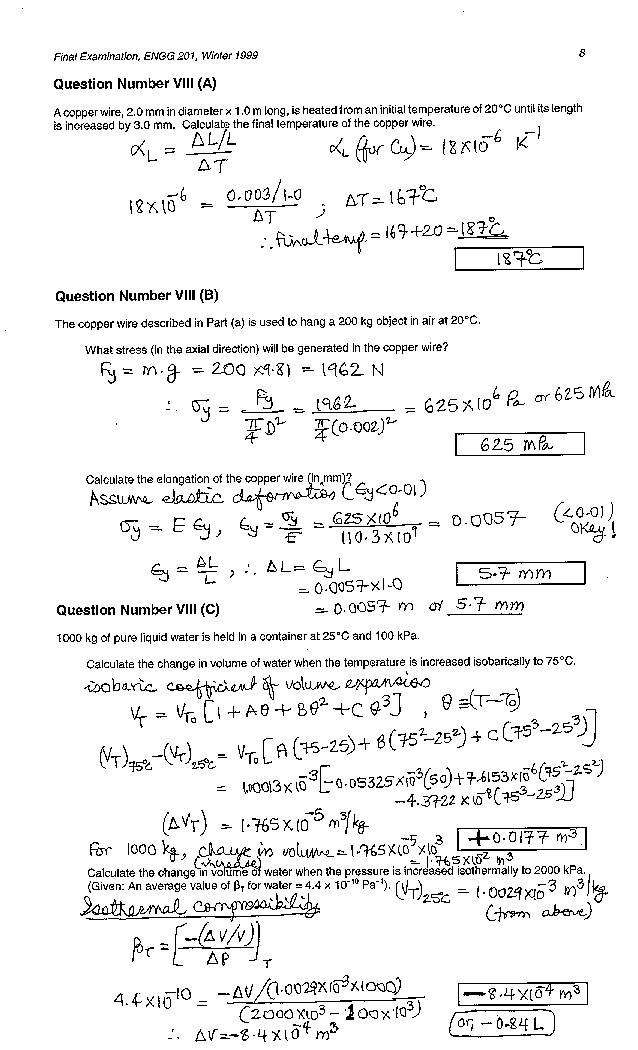 Final Examination, ENGG 201, Winter 1999 8
Question Number VIII (A)
A copper wire, 2.0 mm in diameter x 1.0 m long, is heated from an initial temperature of 20°C until its length
is increased by 3.0 mm. Calculate the final temperature of the copper wire.
α_L = (ΔL/L)/ΔT α_L (for Cu) = 18×10⁻⁶ K⁻¹
18×10⁻⁶ = (0.003/1.0)/ΔT ; ΔT = 167°C
∴ final temp. = 167+20 = 187°C
187°C
Question Number VIII (B)
The copper wire described in Part (a) is used to hang a 200 kg object in air at 20°C.
What stress (in the axial direction) will be generated in the copper wire?
Fy = m.g = 200 ×9.81 = 1962 N
∴ σy = Fy/(π/4 D²) = 1962/(π/4 (0.002)²) = 625×10⁶ Pa or 625 MPa
625 MPa
Calculate the elongation of the copper wire (in mm)?
Assume elastic deformation (ϵy<0.01)
σy = E ϵy, ϵy = σy/E = 625×10⁶/110.3×10⁹ = 0.0057 (<0.01)
Okey!
ϵy = ΔL/L , ∴ ΔL = ϵy L
5.7 mm
= 0.0057×1.0
Question Number VIII (C) = 0.0057 m or 5.7 mm
1000 kg of pure liquid water is held in a container at 25°C and 100 kPa.
Calculate the change in volume of water when the temperature is increased isobarically to 75°C.
isobaric coefficient of volume expansion
V_T = V_To [1+Aθ+Bθ²+Cθ³] , θ ≡(T-To)
(V_T)75°c - (V_T)25°c = V_To [A(75-25)+B(75²-25²)+C(75³-25³)]
= 1.00013×10⁻³[-0.05325×10⁻³(50)+7.6153×10⁻⁶(75²-25²)
-4.3722×10⁻⁸(75³-25³)]
(ΔV_T) = 1.765×10⁻⁵ m³/kg
For 1000 kg, change in volume = 1.765×10⁻⁵×10³ +0.0177 m³
(increase) = 1.765×10⁻² m³
Calculate the change in volume of water when the pressure is increased isothermally to 2000 kPa.
(Given: An average value of β_T for water = 4.4 x 10⁻¹⁰ Pa⁻¹). (V_T)25°c = 1.0029×10⁻³ m³/kg
Isothermal compressibility (from above)
β_T = [-(ΔV/V)/ΔP]_T
4.4×10⁻¹⁰ = -ΔV/(1.0029×10⁻³×1000)/(2000×10³ - 100×10³) -8.4×10⁻⁴ m³
∴ ΔV = -8.4×10⁻⁴ m³ or, -0.84 L